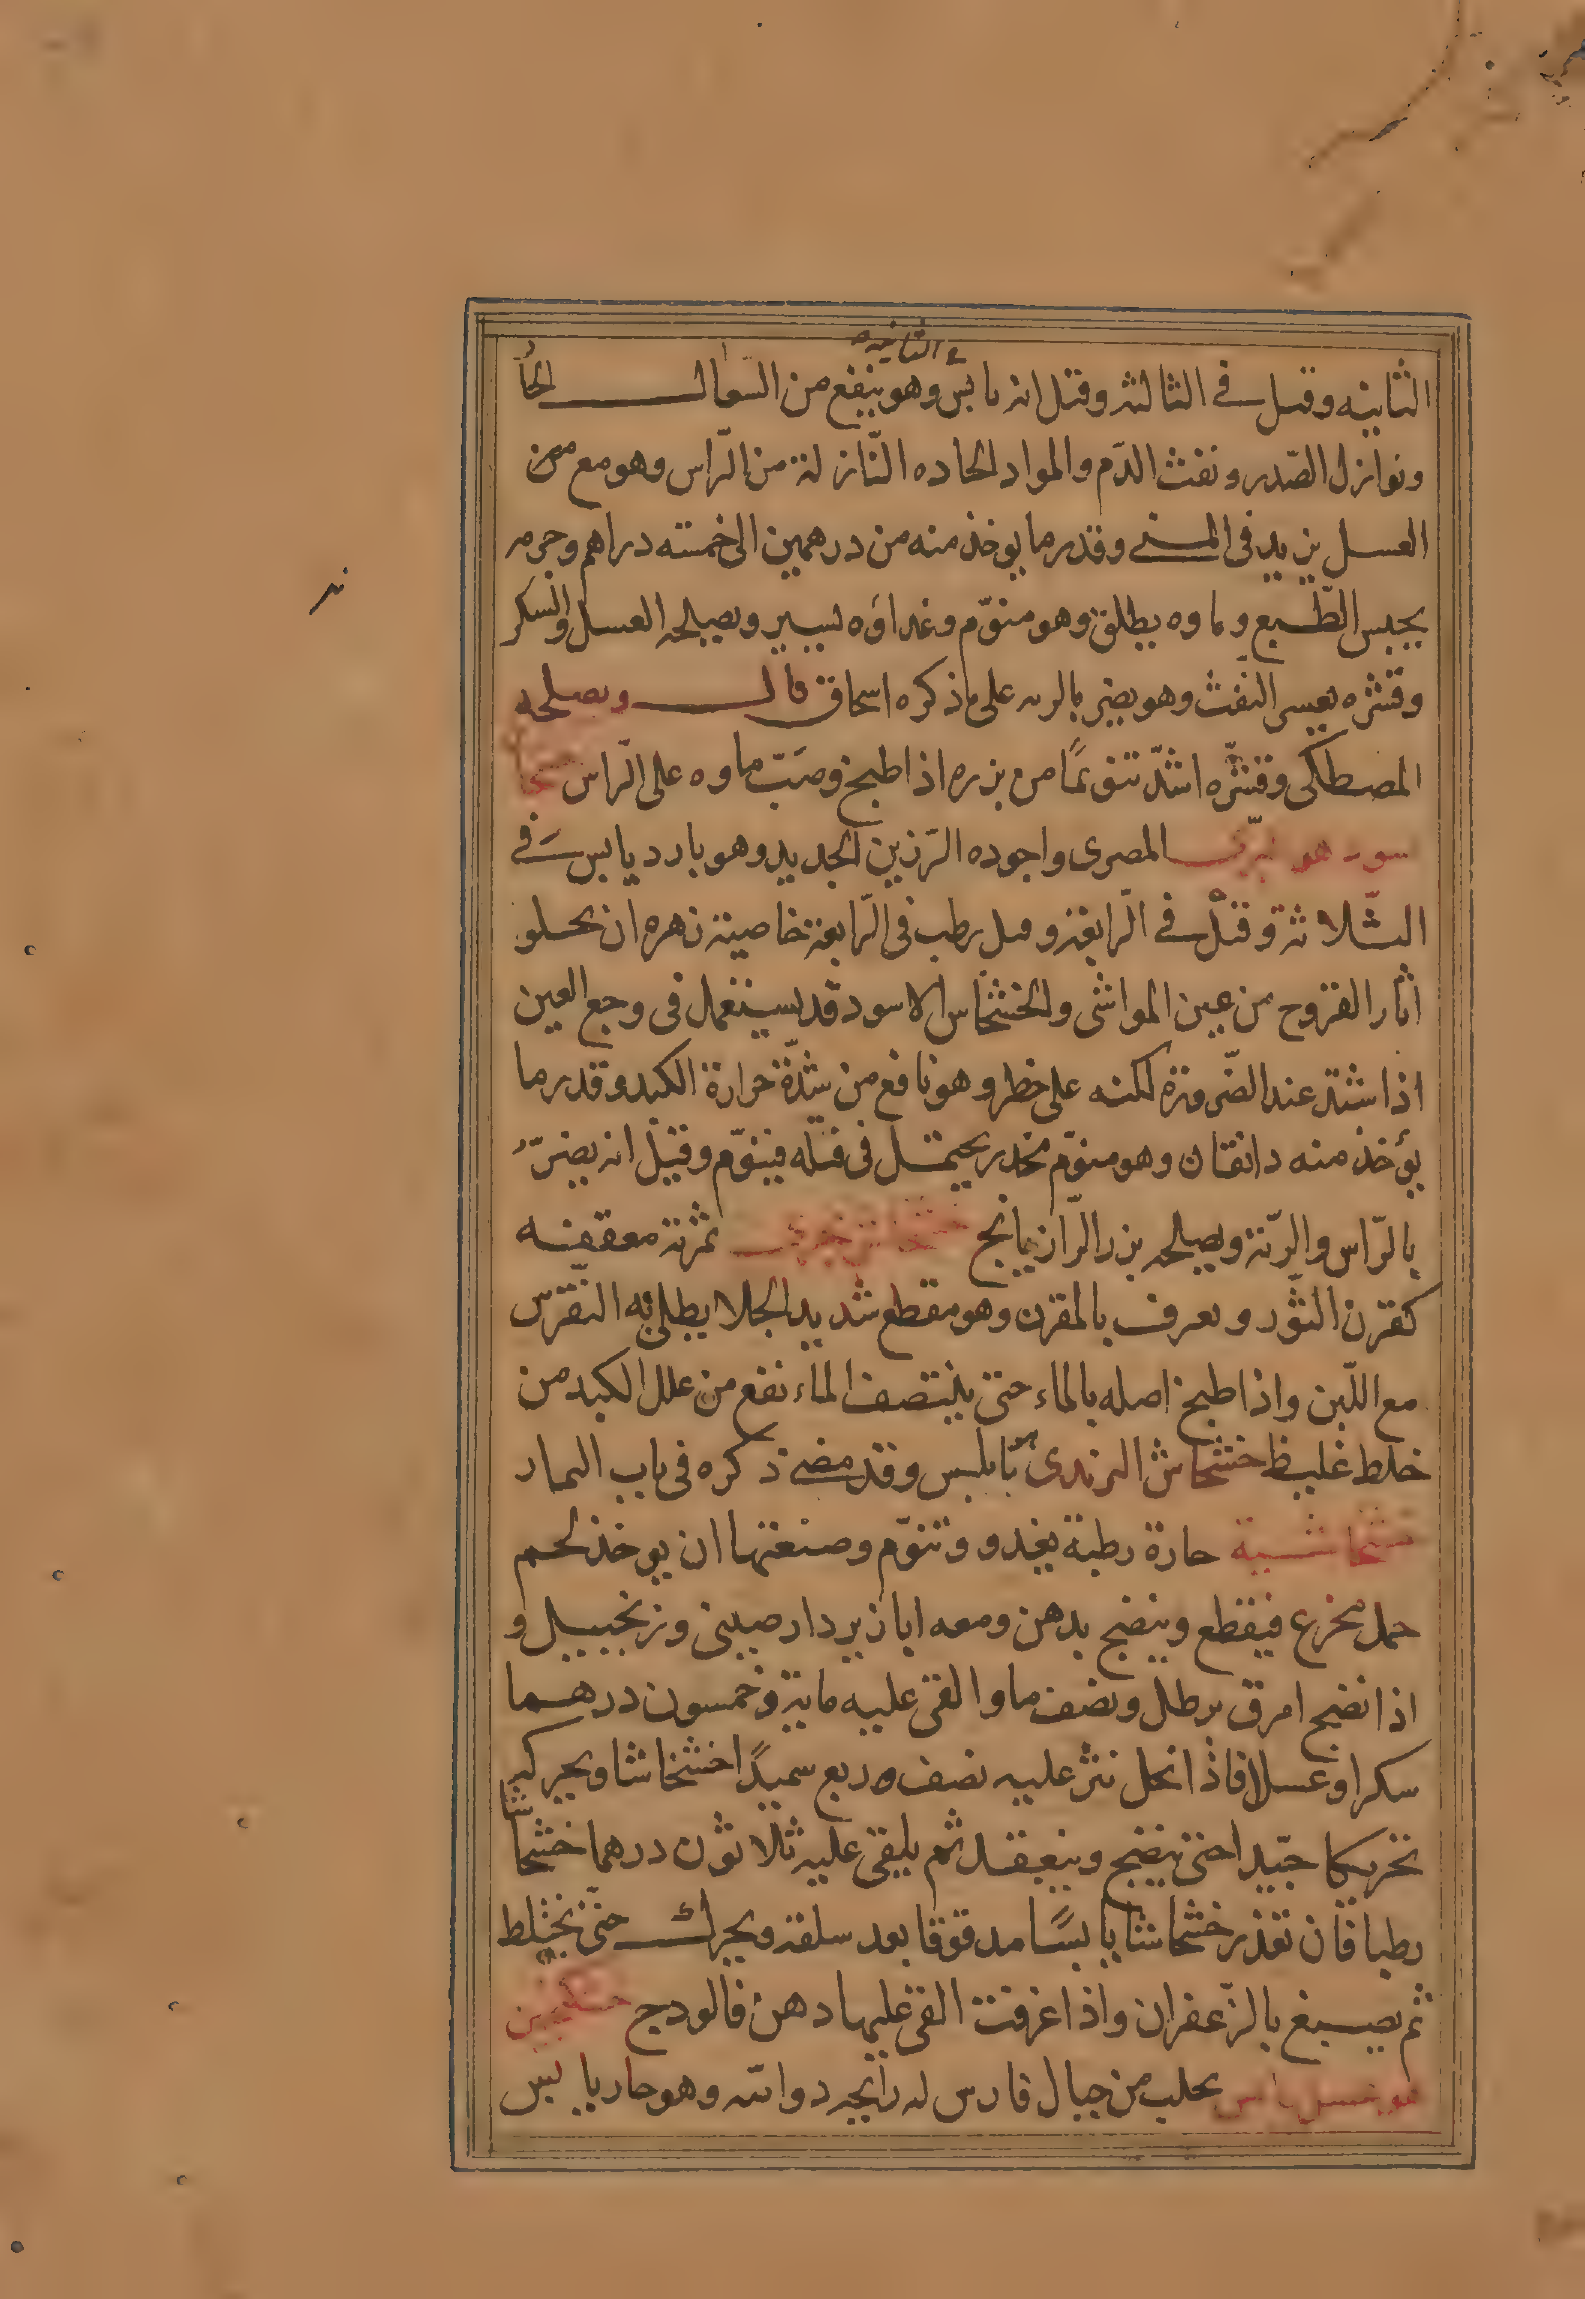 في الثانيه
الثانيه وقيل في الثالثه وقيل انه يابس وهو ينفع من السعال الحار
ونوازل الصدر ونفث الدم والمواد الحاده النازلة من الراس وهو مع
العسل يزيد في المني وقدر ما يوخذ منه من درهمين الى خمسه دراهم وجرمه
يحبس الطبع وماوه يطلق وهو منوم وغداوه يسير ويصلحه العسل والسكر
وقشره يعسر النفث وهو يضر بالريه على ما ذكره اسحاق قال ويصلحه
المصطكى وقشره اشد تنويما من بزره اذا طبخ وصب ماوه على الراس
سود هو المصرى واجوده الرزين الجديد وهو بارد يابس في
الثلاثة وقيل في الرابعة وقيل رطب في الرابعة خاصية زهره ان يجلو
اثار القروح من عين المواشى والخشخاش الاسود قد يستعمل في وجع العين
اذا اشتد عند الضرورة لكنه على خطر وهو نافع من شدة حرارة الكبد وقدر ما
يؤخذ منه دانقان وهو منوم مخدر يحتمل في فتله فينوم وقيل انه يضر
بالراس والرية ويصلحه بزر الرازيانج ثمرته معقفه
كقرن الثور ويعرف بالمقرن وهو مقطع شديد الجلا يطلى به النقرس
مع اللبن واذا طبخ اصله بالماء حتى ينتصف الماء نفع من علل الكبد من
خلط غليظ خشخاش الزبدى هو بابلس وقد مضى ذكره في باب
خشخاشية حارة رطبة يغدو وتنوم وصنعتها ان يوخذ لحم
حمل مخزع فيقطع وينضج بدهن ومعه ابازير دارصينى وزنجبيل و
اذا نضج امرق برطل ونصف ما والقى عليه ماية وخمسون درهما
سكرا وعسلا فاذا انحل نثر عليه نصف وربع سميدا خشخاشا ويحركه
تحريكا جيدا حتى ينضج وينعقد ثم يلقى عليه ثلاثون درهما خشخاشا
رطبا فان تعذر خشخاشا يابسا مدقوقا بعد سلقه ويحرك حتى يختلط
ثم يصبغ بالزعفران واذا غرفت القى عليها دهن فالودج
هو عسل يابس يجلب من جبال فارس له رايحه دوائيه وهو حار يابس